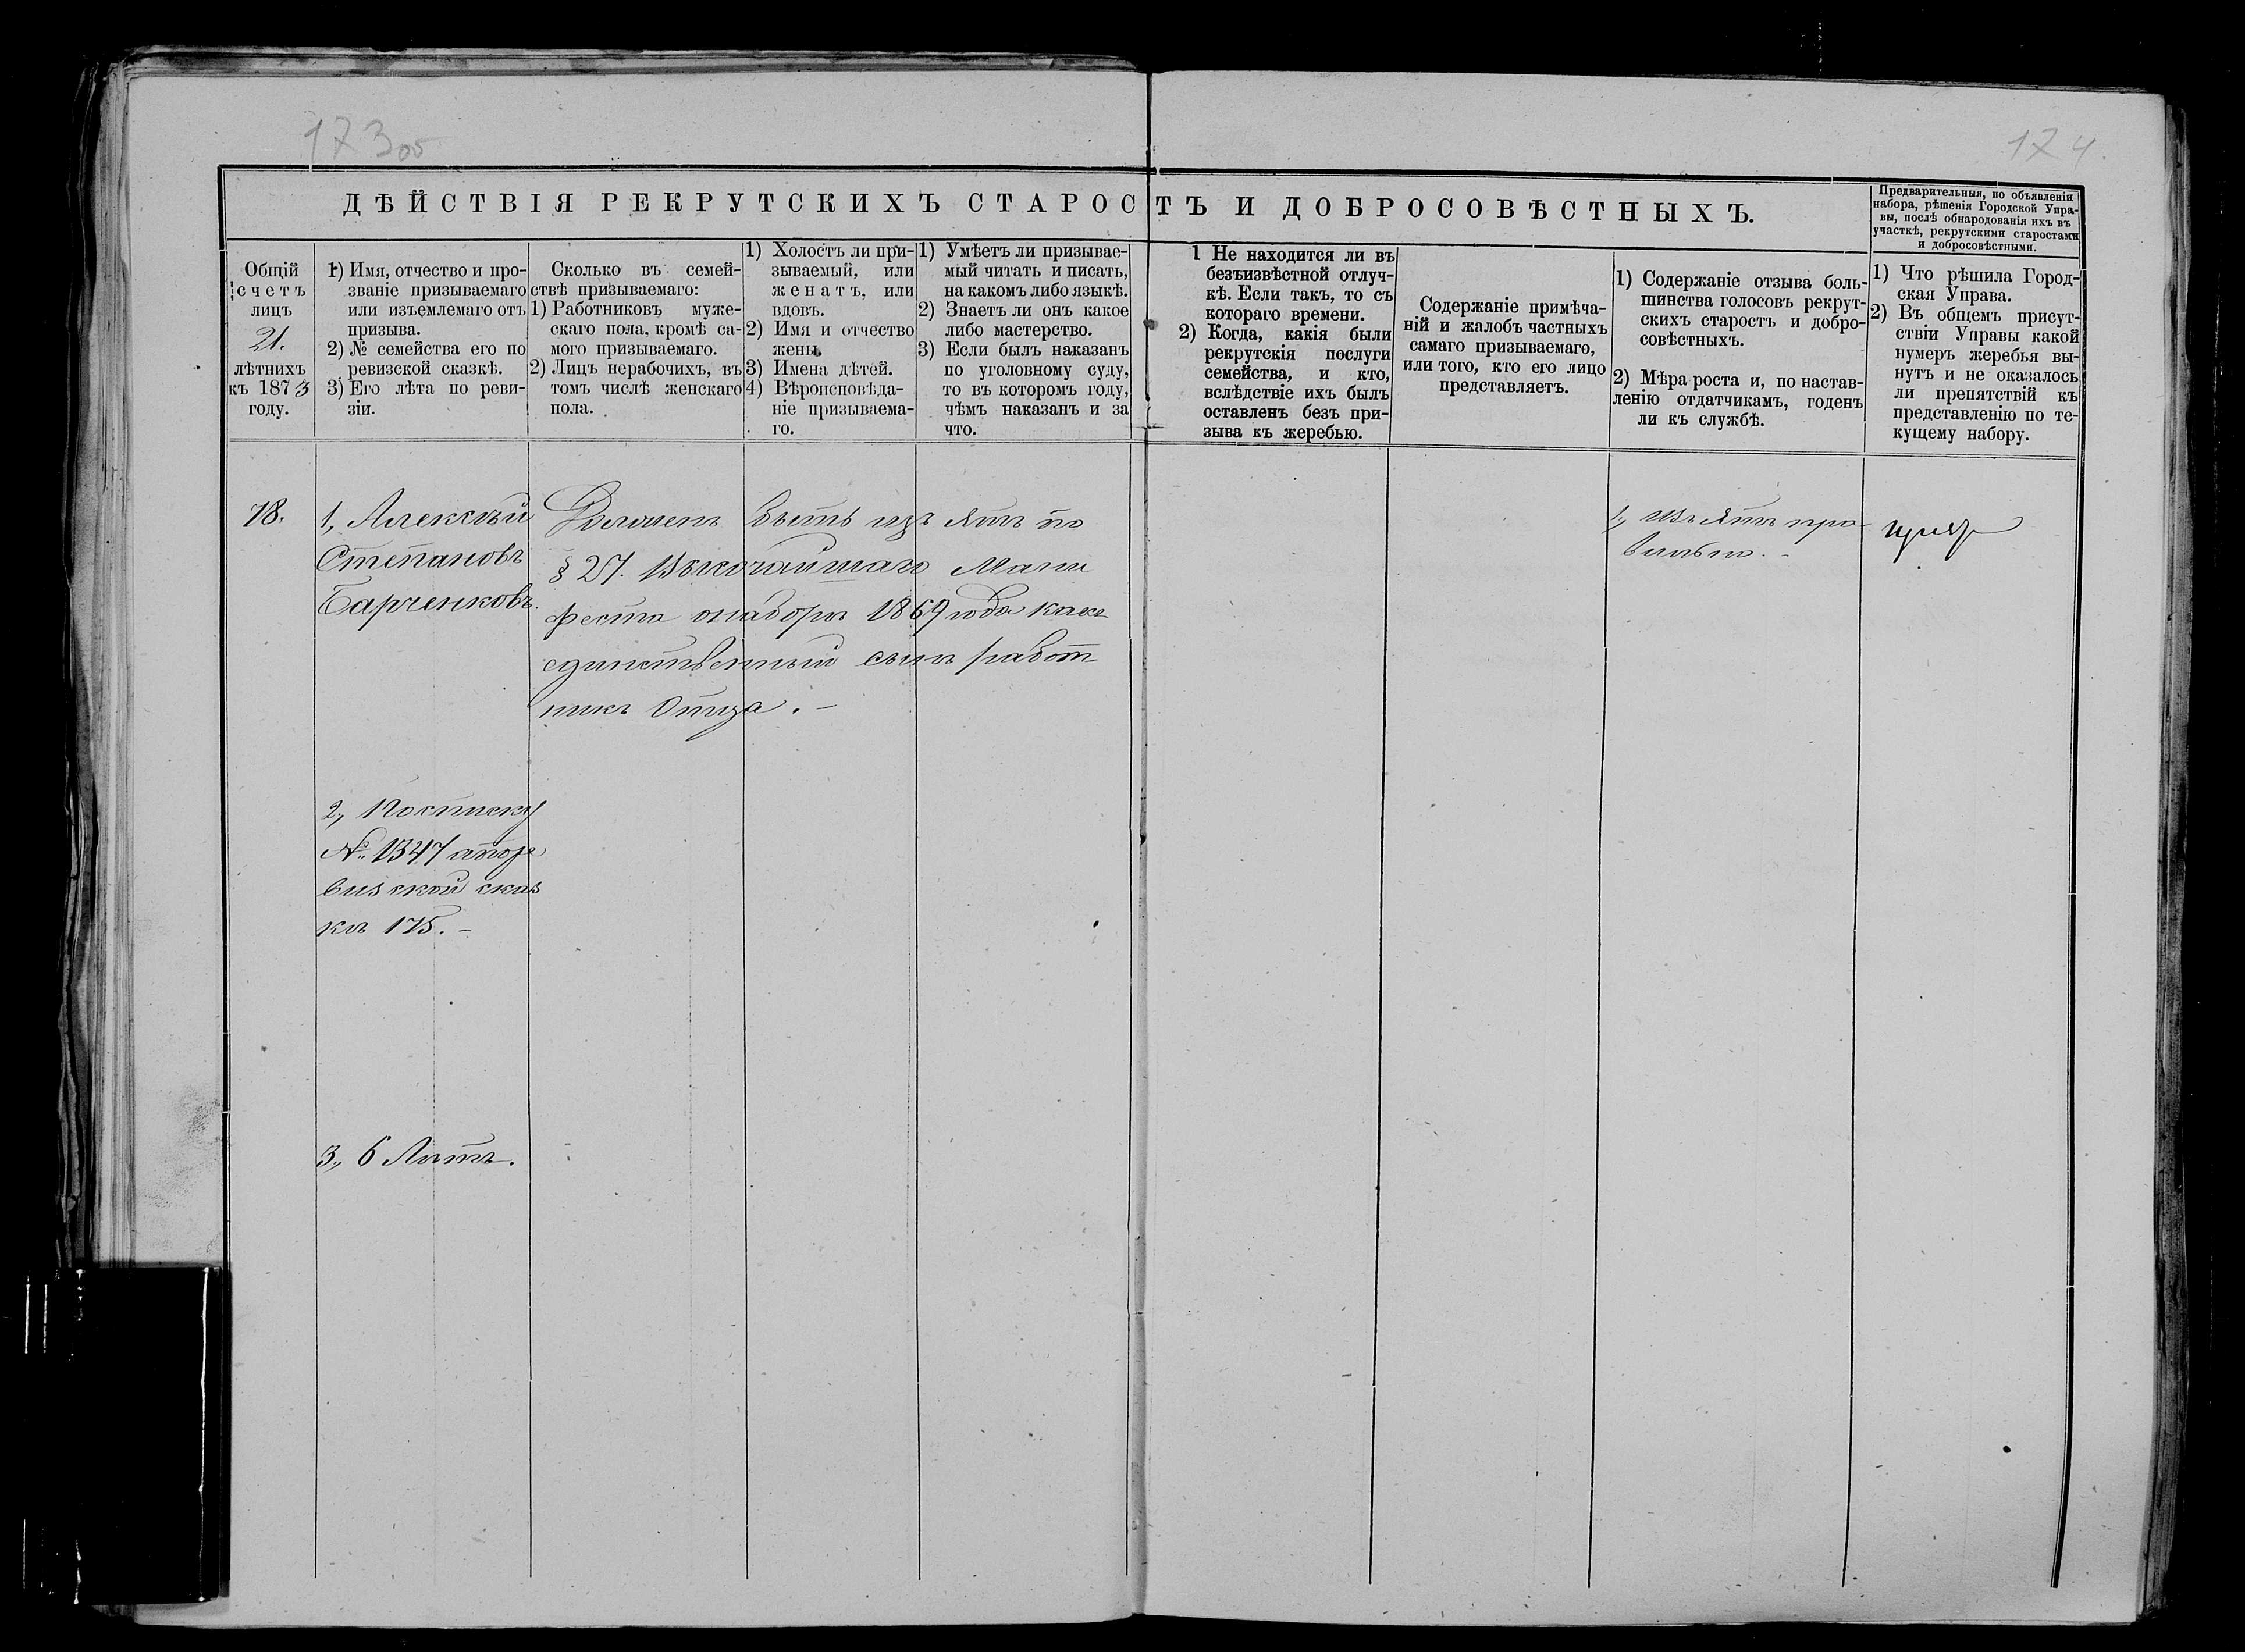 173об
174.
ДѢЙСТВІЯ РЕКРУТСКИХЪ СТАРОСТЪ И ДОБРОСОВѢСТНЫХЪ.
Предварительныя, по объявленіи
набора, рѣшенія Городской Упра-
вы, послѣ обнародованія ихъ въ
участкѣ, рекрутскими старостами
и добросовѣстными.
Общій
счетъ
лицъ
21.
лѣтнихъ
къ 1873
году.
1) Имя, отчество и про-
званіе призываемаго
или изъемлемаго отъ
призыва.
2) № семейства его по
ревизской сказкѣ.
3) Его лѣта по реви-
зіи.
Сколько въ семей-
ствѣ призываемаго:
1) Работниковъ муже-
скаго пола, кромѣ са-
мого призываемаго.
2) Лицъ нерабочихъ, въ
томъ числѣ женскаго
пола.
1) Холостъ ли при-
зываемый, или
женатъ, или
вдовъ.
2) Имя и отчество
жены.
3) Имена дѣтей.
4) Вѣроисповѣда-
ніе призываема-
го.
1) Умѣетъ ли призывае-
мый читать и писать,
на какомъ либо языкѣ.
2) Знаетъ ли онъ какое
либо мастерство.
3) Если былъ наказанъ
по уголовному суду,
то въ которомъ году,
чѣмъ наказанъ и за
что.
1 Не находится ли въ
безъизвѣстной отлуч-
кѣ. Если такъ, то съ
котораго времени.
2) Когда, какія были
рекрутскія послуги
семейства, и кто,
вслѣдствіе ихъ былъ
оставленъ безъ при-
зыва къ жеребью.
Содержаніе примѣча-
ній и жалобъ частныхъ
самаго призываемаго,
или того, кто его лицо
представляетъ.
1) Содержаніе отзыва боль-
шинства голосовъ рекрут-
скихъ старостъ и добро-
совѣстныхъ.
2) Мѣра роста и, по настав-
ленію отдатчикамъ, годенъ
ли къ службѣ.
1) Что рѣшила Город-
ская Управа.
2) Въ общемъ присут-
ствіи Управы какой
нумеръ жеребья вы-
нутъ и не оказалось
ли препятствій къ
представленію по те-
кущему набору.
78.
1, Алексѣй
Степановъ
Барченковъ.
2, Посписку
№ 1347 апоре
визской сказ
кѣ 175.-
3, 6 Лѣтъ.
Долженъ быть изъятъ по
§ 27. Высочайшаго Мани
феста онаборѣ 1869 года какъ
единственный сынъ работ
никъ Отца.-
1, Изъятъ пра
вильно.-